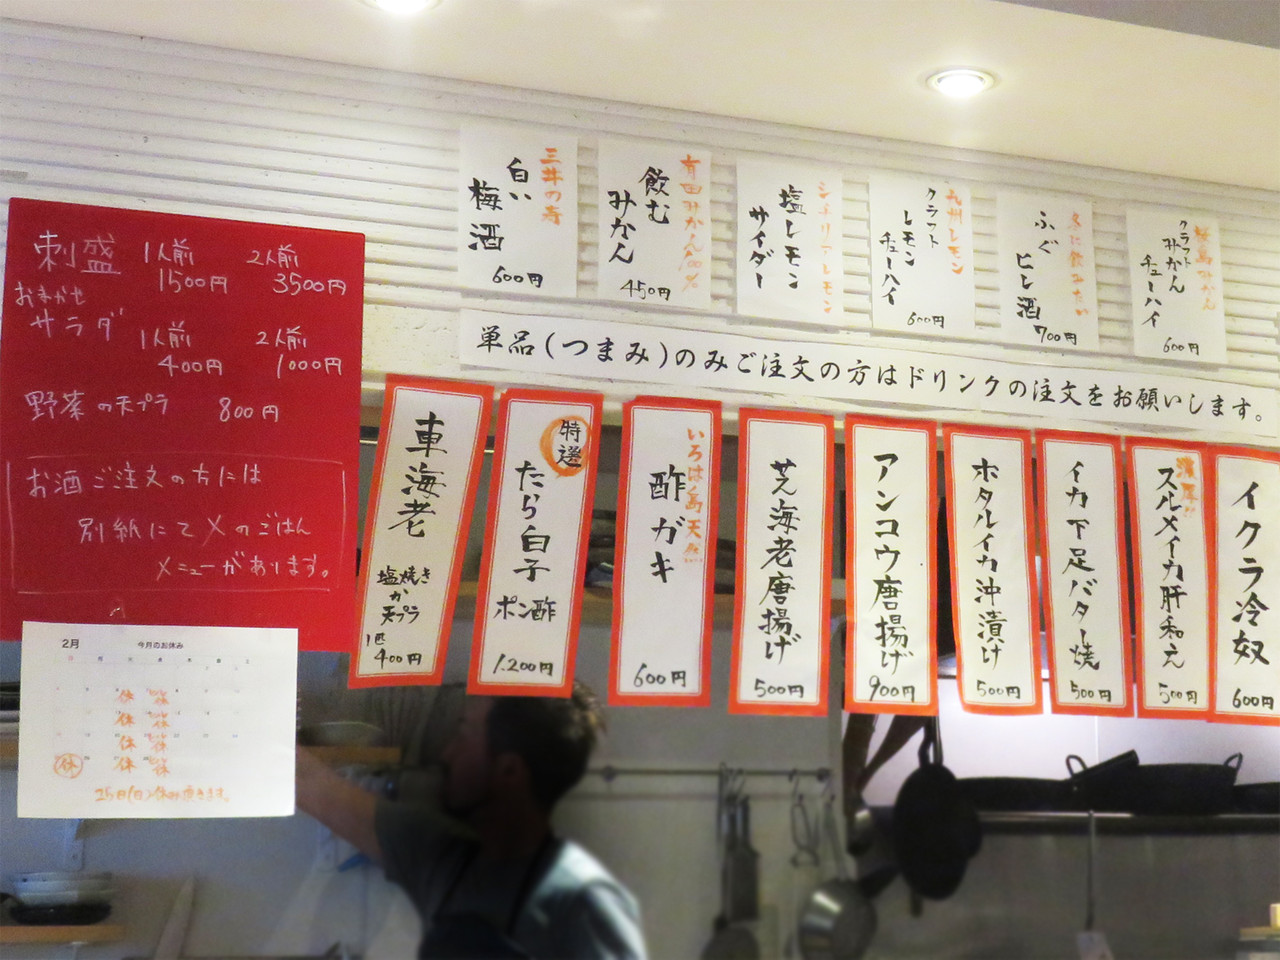 刺盛 1人前 2人前
1500円 3500円
おまかせ
サラダ
1人前 2人前
400円 1000円
野菜の天プラ 800円
お酒ご注文の方には
別紙にて〆のごはん
メニューがあります。
2月 今月のお休み
休
休
休
休 休
25日(日)休み頂きます。
三井の寿
白い
梅酒
600円
有田みかん100%
飲む
みかん
450円
シチリアレモン
塩レモン
サイダー
九州レモン
クラフト
レモン
チューハイ
600円
冬に飲みたい
ふぐ
ヒレ酒
700円
みかん
クラフト
みかん
チューハイ
600円
単品(つまみ)のみご注文の方はドリンクの注文をお願いします。
車海老
塩焼き
か
天プラ
1匹
400円
特選
たら白子
ポン酢
1.200円
いろは島天然
酢ガキ
600円
芝海老唐揚げ
500円
アンコウ唐揚げ
900円
ホタルイカ沖漬け
500円
イカ下足バター焼
500円
濃厚!!
スルメイカ肝和え
500円
イクラ冷奴
600円